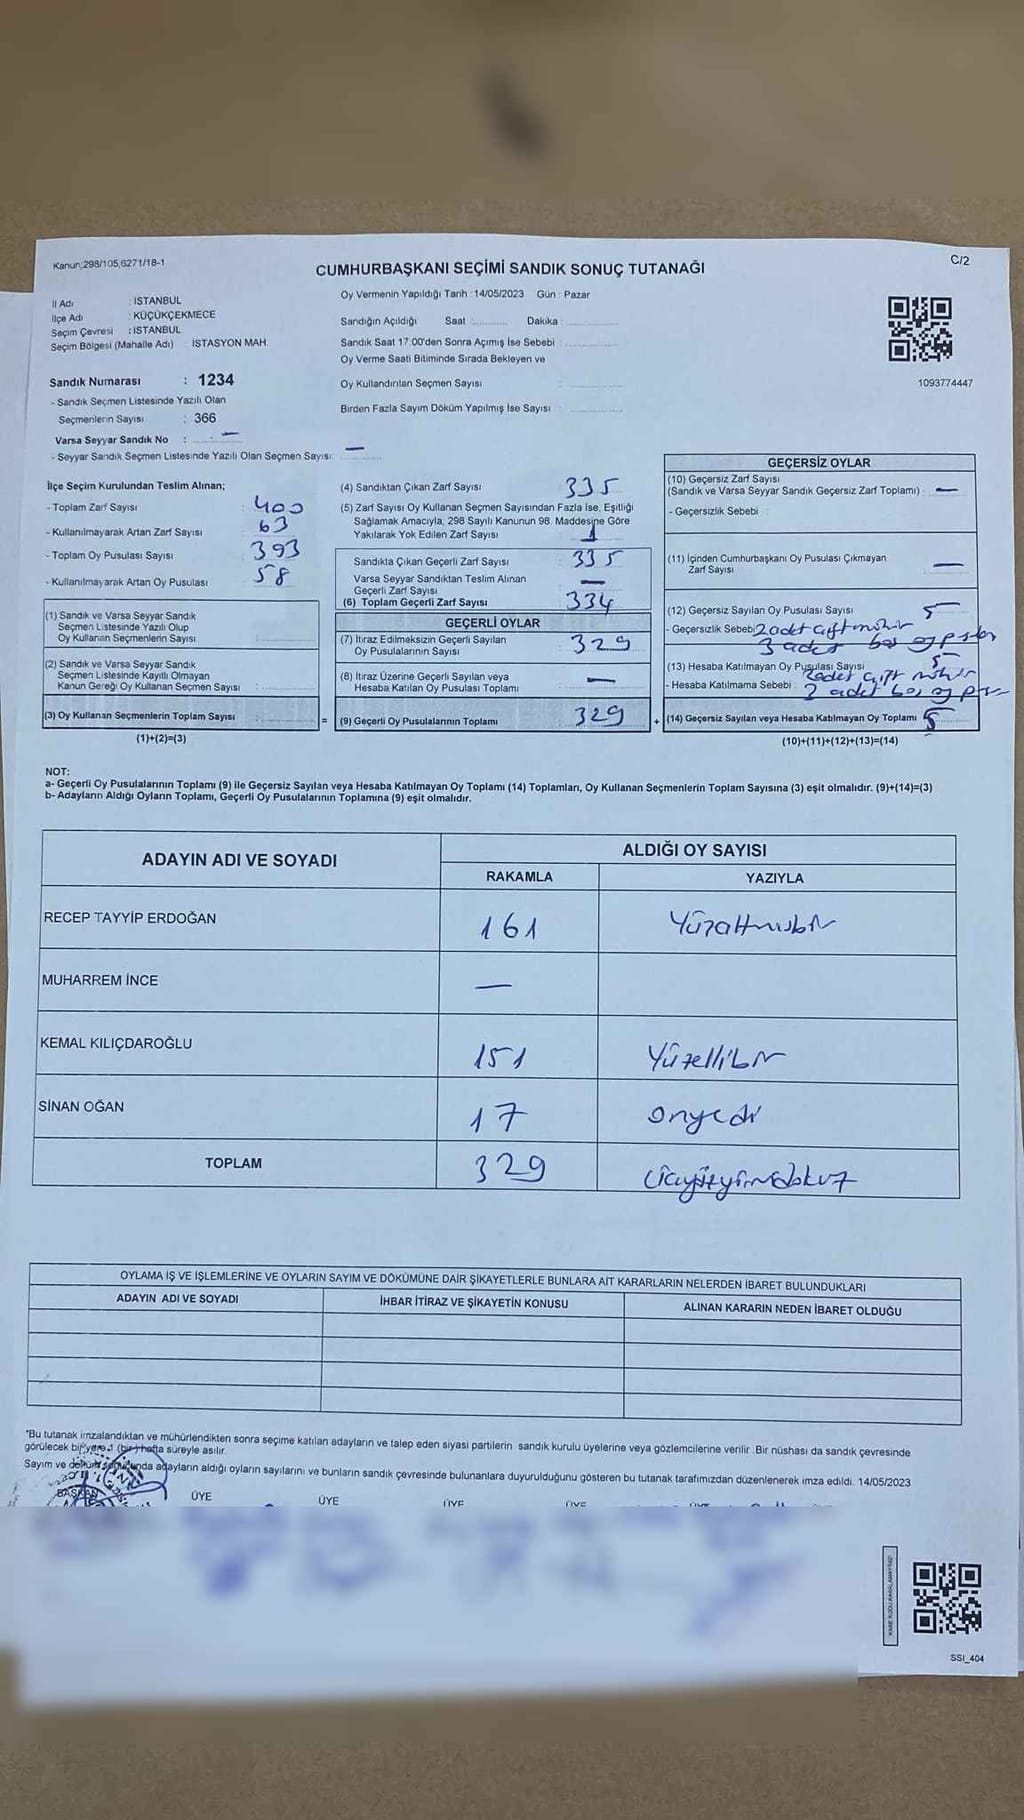 Kanun;298/105,6271/18-1
C/2
CUMHURBAŞKANI SEÇİMİ SANDIK SONUÇ TUTANAĞI
İl Adı : İSTANBUL
İlçe Adı : KÜÇÜKÇEKMECE
Seçim Çevresi : İSTANBUL
Seçim Bölgesi (Mahalle Adı) : İSTASYON MAH.
Sandık Numarası : 1234
- Sandık Seçmen Listesinde Yazılı Olan
Seçmenlerin Sayısı : 366
Varsa Seyyar Sandık No : —
- Seyyar Sandık Seçmen Listesinde Yazılı Olan Seçmen Sayısı: —
Oy Vermenin Yapıldığı Tarih : 14/05/2023 Gün : Pazar
Sandığın Açıldığı Saat : Dakika :
Sandık Saat 17:00'den Sonra Açımış İse Sebebi :
Oy Verme Saati Bitiminde Sırada Bekleyen ve
Oy Kullandırılan Seçmen Sayısı :
Birden Fazla Sayım Döküm Yapılmış İse Sayısı :
1093774447
İlçe Seçim Kurulundan Teslim Alınan;
- Toplam Zarf Sayısı : 400
- Kullanılmayarak Artan Zarf Sayısı : 63
- Toplam Oy Pusulası Sayısı : 393
- Kullanılmayarak Artan Oy Pusulası : 58
(1) Sandık ve Varsa Seyyar Sandık
Seçmen Listesinde Yazılı Olup
Oy Kullanan Seçmenlerin Sayısı :
(2) Sandık ve Varsa Seyyar Sandık
Seçmen Listesinde Kayıtlı Olmayan
Kanun Gereği Oy Kullanan Seçmen Sayısı :
(3) Oy Kullanan Seçmenlerin Toplam Sayısı :
(1)+(2)=(3)
(4) Sandıktan Çıkan Zarf Sayısı 335
(5) Zarf Sayısı Oy Kullanan Seçmen Sayısından Fazla İse, Eşitliği
Sağlamak Amacıyla, 298 Sayılı Kanunun 98. Maddesine Göre
Yakılarak Yok Edilen Zarf Sayısı 1
Sandıkta Çıkan Geçerli Zarf Sayısı 335
Varsa Seyyar Sandıktan Teslim Alınan
Geçerli Zarf Sayısı —
(6) Toplam Geçerli Zarf Sayısı 334
GEÇERLİ OYLAR
(7) İtiraz Edilmeksizin Geçerli Sayılan
Oy Pusulalarının Sayısı 329
(8) İtiraz Üzerine Geçerli Sayılan veya
Hesaba Katılan Oy Pusulası Toplamı —
= (9) Geçerli Oy Pusulalarının Toplamı 329 +
GEÇERSİZ OYLAR
(10) Geçersiz Zarf Sayısı
(Sandık ve Varsa Seyyar Sandık Geçersiz Zarf Toplamı) : —
- Geçersizlik Sebebi :
(11) İçinden Cumhurbaşkanı Oy Pusulası Çıkmayan
Zarf Sayısı —
(12) Geçersiz Sayılan Oy Pusulası Sayısı 5
- Geçersizlik Sebebi 2 adet çift mühür
3 adet boş oy
(13) Hesaba Katılmayan Oy Pusulası Sayısı 5
- Hesaba Katılmama Sebebi : 2 adet çift mühür
3 adet boş oy
(14) Geçersiz Sayılan veya Hesaba Katılmayan Oy Toplamı 5
(10)+(11)+(12)+(13)=(14)
NOT:
a- Geçerli Oy Pusulalarının Toplamı (9) ile Geçersiz Sayılan veya Hesaba Katılmayan Oy Toplamı (14) Toplamları, Oy Kullanan Seçmenlerin Toplam Sayısına (3) eşit olmalıdır. (9)+(14)=(3)
b- Adayların Aldığı Oyların Toplamı, Geçerli Oy Pusulalarının Toplamına (9) eşit olmalıdır.
ADAYIN ADI VE SOYADI
ALDIĞI OY SAYISI
RAKAMLA YAZIYLA
RECEP TAYYİP ERDOĞAN 161 Yüzaltmışbir
MUHARREM İNCE —
KEMAL KILIÇDAROĞLU 151 Yüzellibir
SİNAN OĞAN 17 onyedi
TOPLAM 329 üçyüzyirmidokuz
OYLAMA İŞ VE İŞLEMLERİNE VE OYLARIN SAYIM VE DÖKÜMÜNE DAİR ŞİKAYETLERLE BUNLARA AİT KARARLARIN NELERDEN İBARET BULUNDUKLARI
ADAYIN ADI VE SOYADI İHBAR İTİRAZ VE ŞİKAYETİN KONUSU ALINAN KARARIN NEDEN İBARET OLDUĞU
*Bu tutanak imzalandıktan ve mühürlendikten sonra seçime katılan adayların ve talep eden siyasi partilerin sandık kurulu üyelerine veya gözlemcilerine verilir. Bir nüshası da sandık çevresinde
görülecek bir yere 1 (bir) hafta süreyle asılır.
Sayım ve döküm sonucunda adayların aldığı oyların sayılarını ve bunların sandık çevresinde bulunanlara duyurulduğunu gösteren bu tutanak tarafımızdan düzenlenerek imza edildi. 14/05/2023
BAŞKAN ÜYE ÜYE ÜYE ÜYE ÜYE
SSI_404